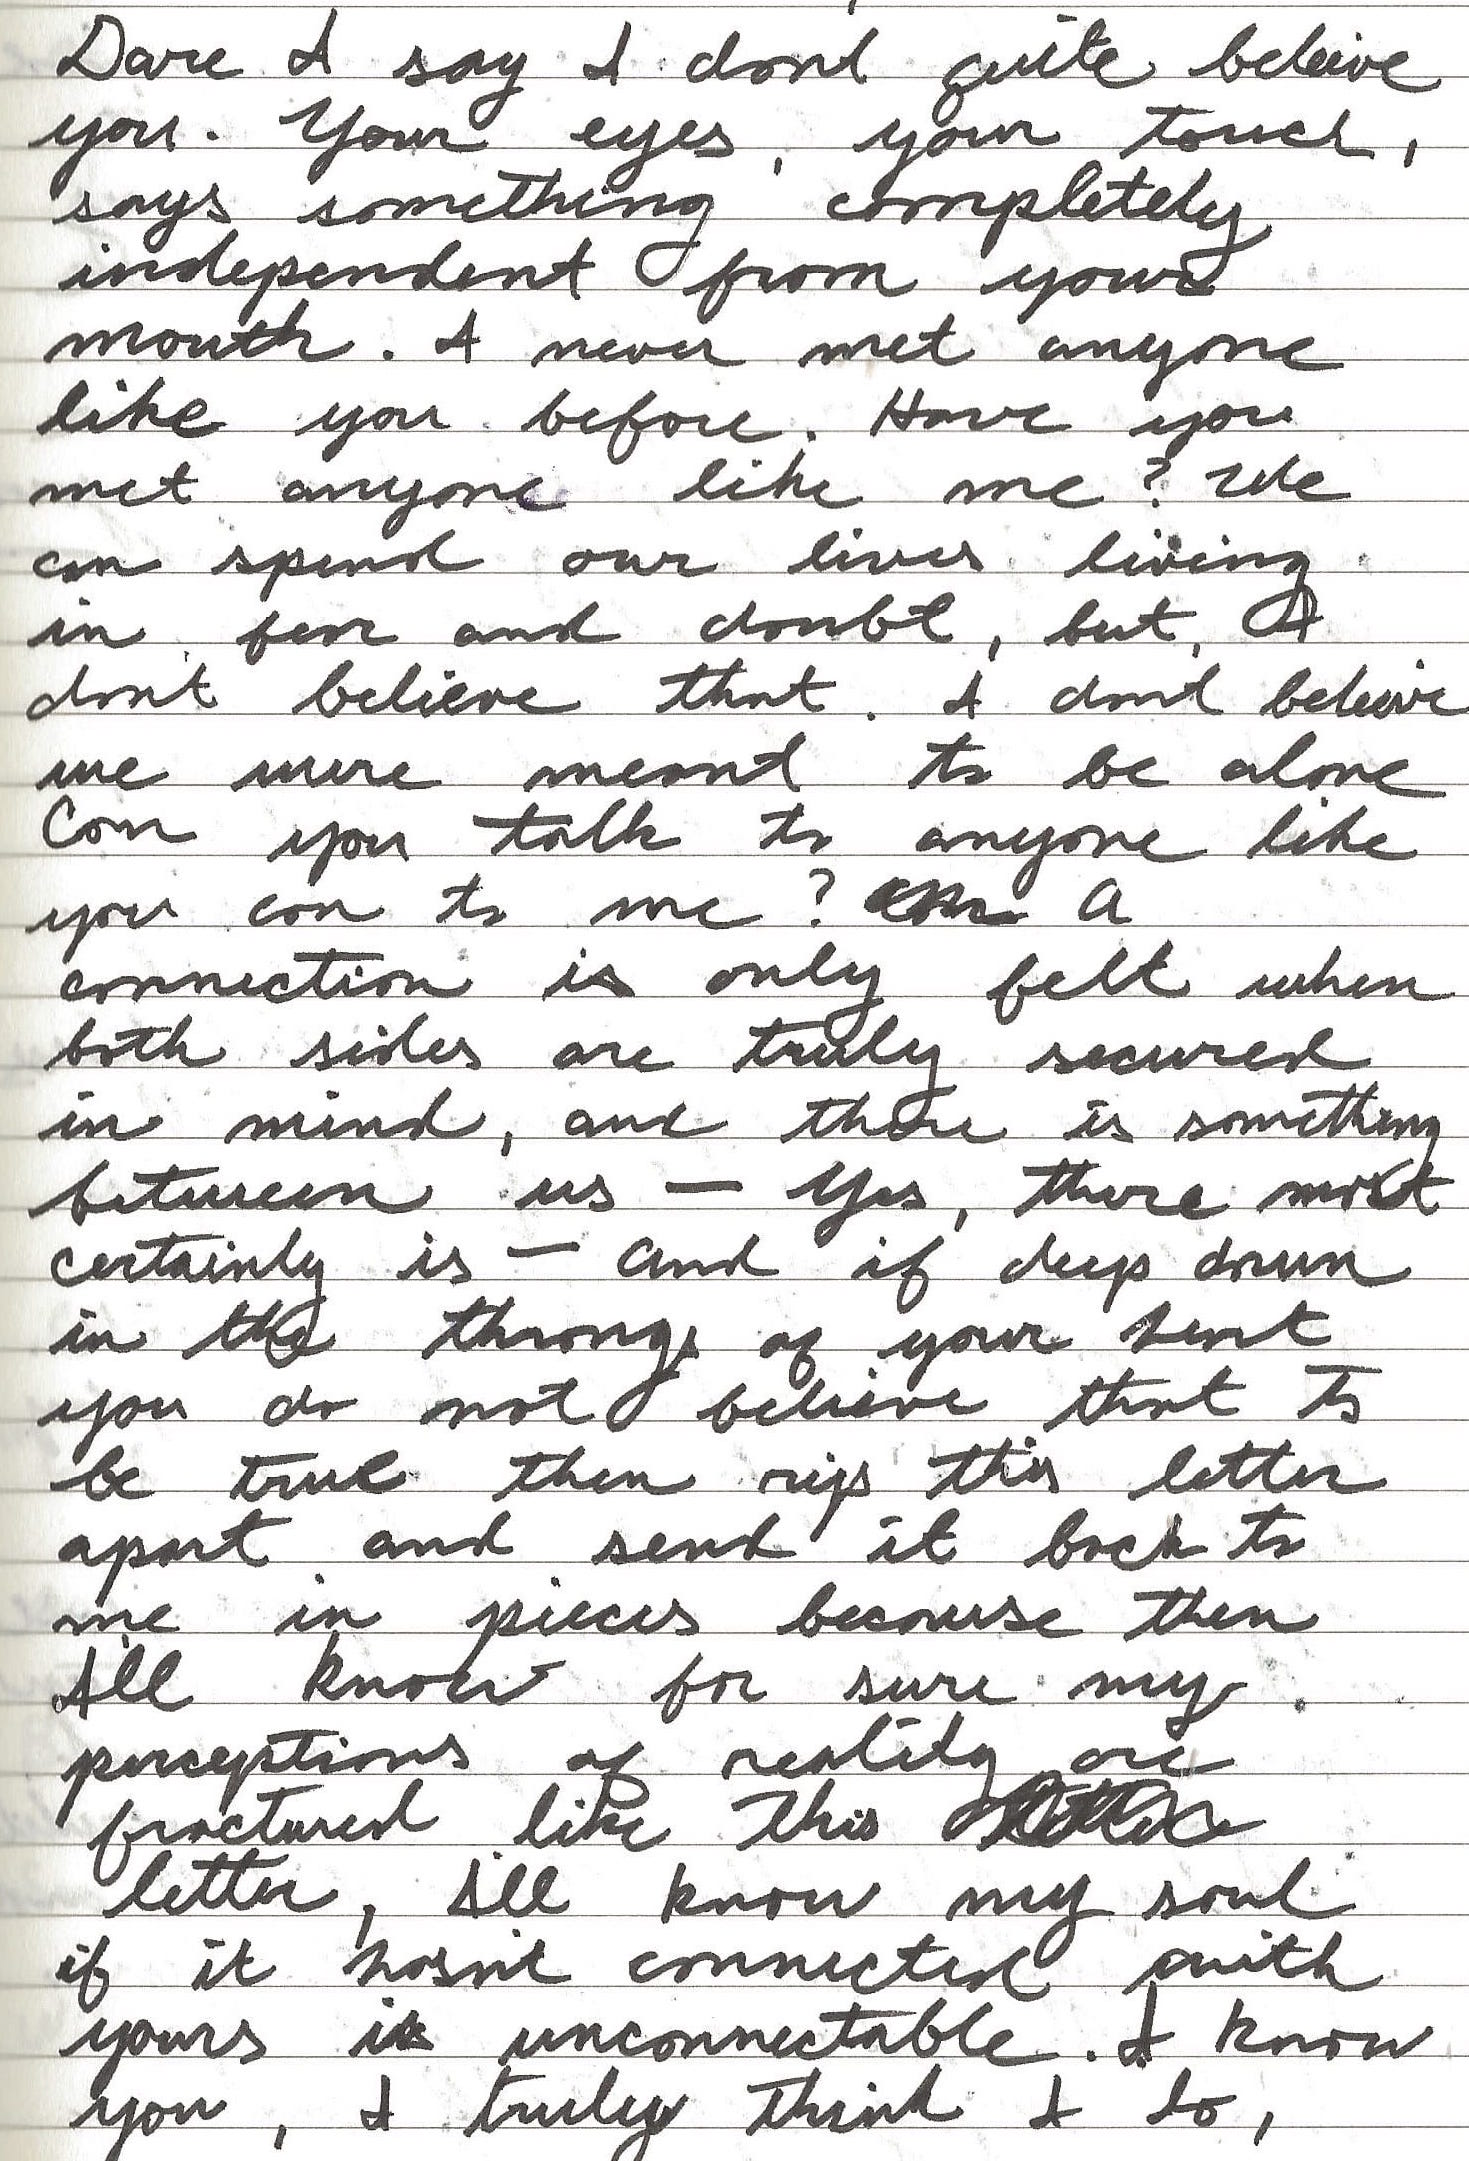 Dare I say I dont quite beleive
you. Your eyes, your touch,
says something completely
independent from your
mouth. I never met anyone
like you before. Have you
met anyone like me? We
can spend our lives living
in fear and doubt, but, I
don't believe that. I dont beleive
we were meant to be alone
Can you talk to anyone like
you can to me? A
connection is only felt when
both sides are truly secured
in mind, and there is something
between us — Yes, there most
certainly is — and if deep down
in the throngs of your heart
you do not believe that to
be true then rip this letter
apart and send it back to
me in pieces because then
I'll know for sure my
perceptions of reality are
fractured like this
letter, I'll know my soul
if it hasn't connected with
yours is unconnectable. I know
you, I truly think I do,